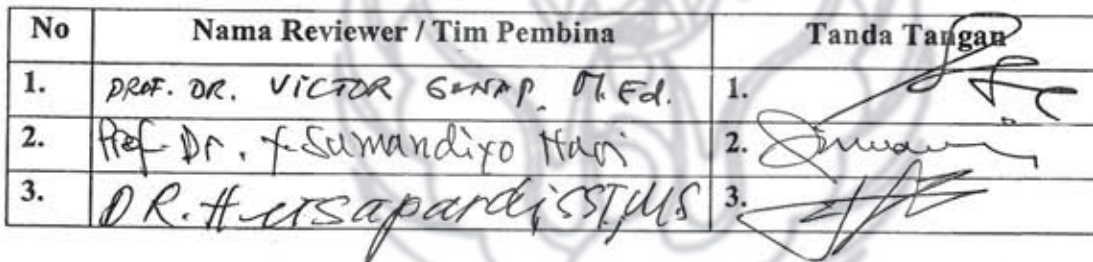 No Nama Reviewer / Tim Pembina Tanda Tangan
1. PROF. DR. VICTOR GANAP, M.Ed. 1.
2. Prof. Dr. Y. Sumandiyo Hadi 2.
3. DR. Hersapandi, SST, MS 3.